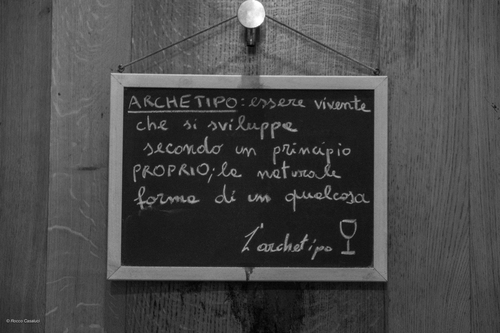 ARCHETIPO: essere vivente
che si sviluppa
secondo un principio
PROPRIO; la naturale
forma di un qualcosa
L'archetipo
© Rocco Casaluci